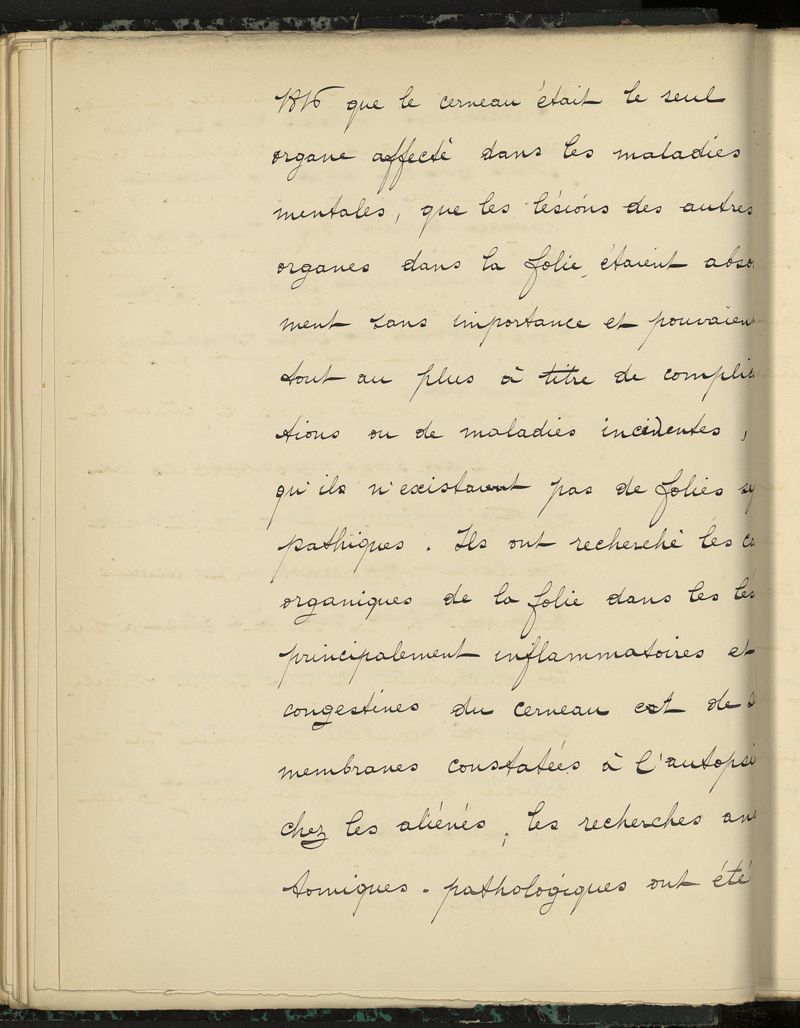 1816 que le cerveau était le seul
organe affecté dans les maladies
mentales, que les lésions des autres
organes dans la folie, étaient abso
ment sans importance et pouvaient
tout au plus à titre de complic
tions ou de maladies incidentes,
qu'ils n'existaient pas de folies sy
pathiques. Ils ont recherché les ca
organiques de la folie dans les lés
principalement inflammatoires et
congestives du cerveau et de s
membranes constatées à l'autopsi
chez les aliénés, les recherches ana
tomiques-pathologiques ont été